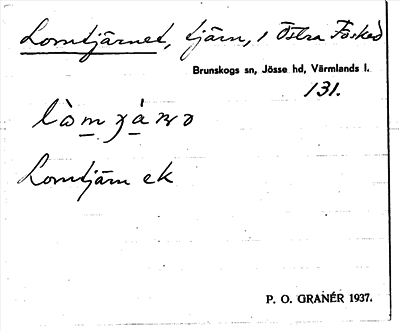 Lomtjärnet, tjärn, i Östra Fåskad
Brunskogs sn, Jösse hd, Värmlands l.
131.
Lomtjärn ek
P. O. GRANÉR 1937.